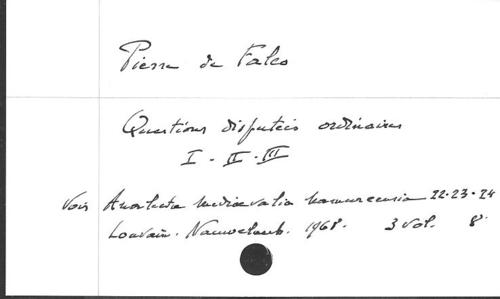 Pierre de Falco
Questions disputées ordinaires
I - II - III
Voir Analecta mediaevalia namurcensia 22-23-24
Louvain. Nauwelaerts. 1968. 3 vol. 8°